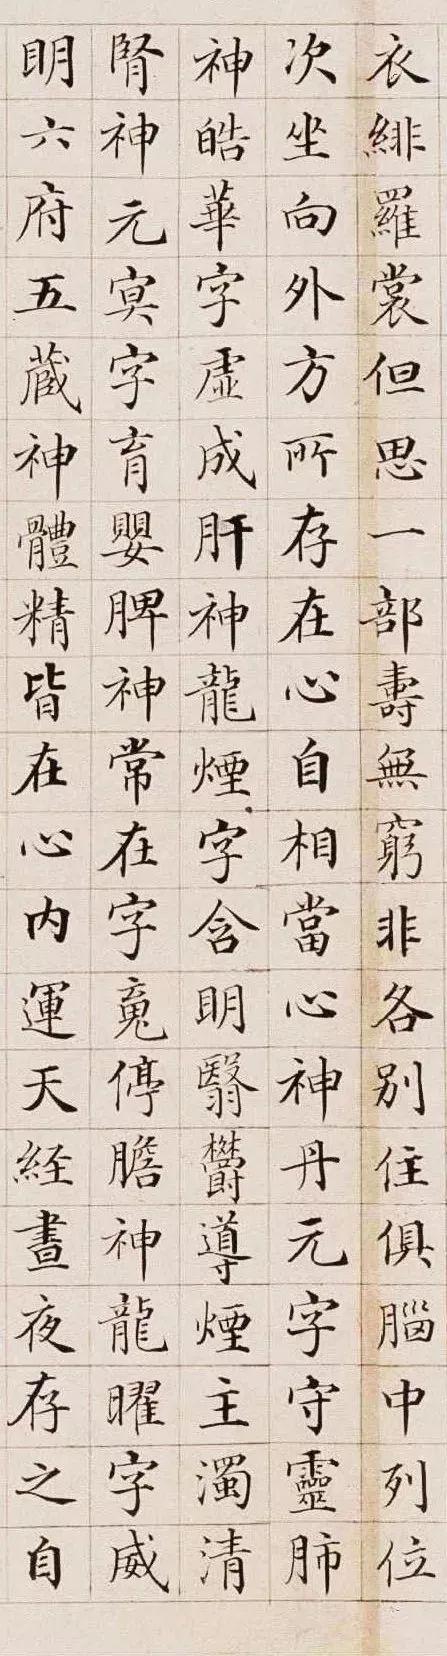 衣緋羅裳但思一部壽無窮非各別住俱腦中列位
次坐向外方所存在心自相當心神丹元字守靈肺
神皓華字虛成肝神龍煙字含明翳欝導煙主濁清
腎神元冥字育嬰脾神常在字䰟停膽神龍曜字威
明六府五蔵神體精皆在心內運天経晝夜存之自